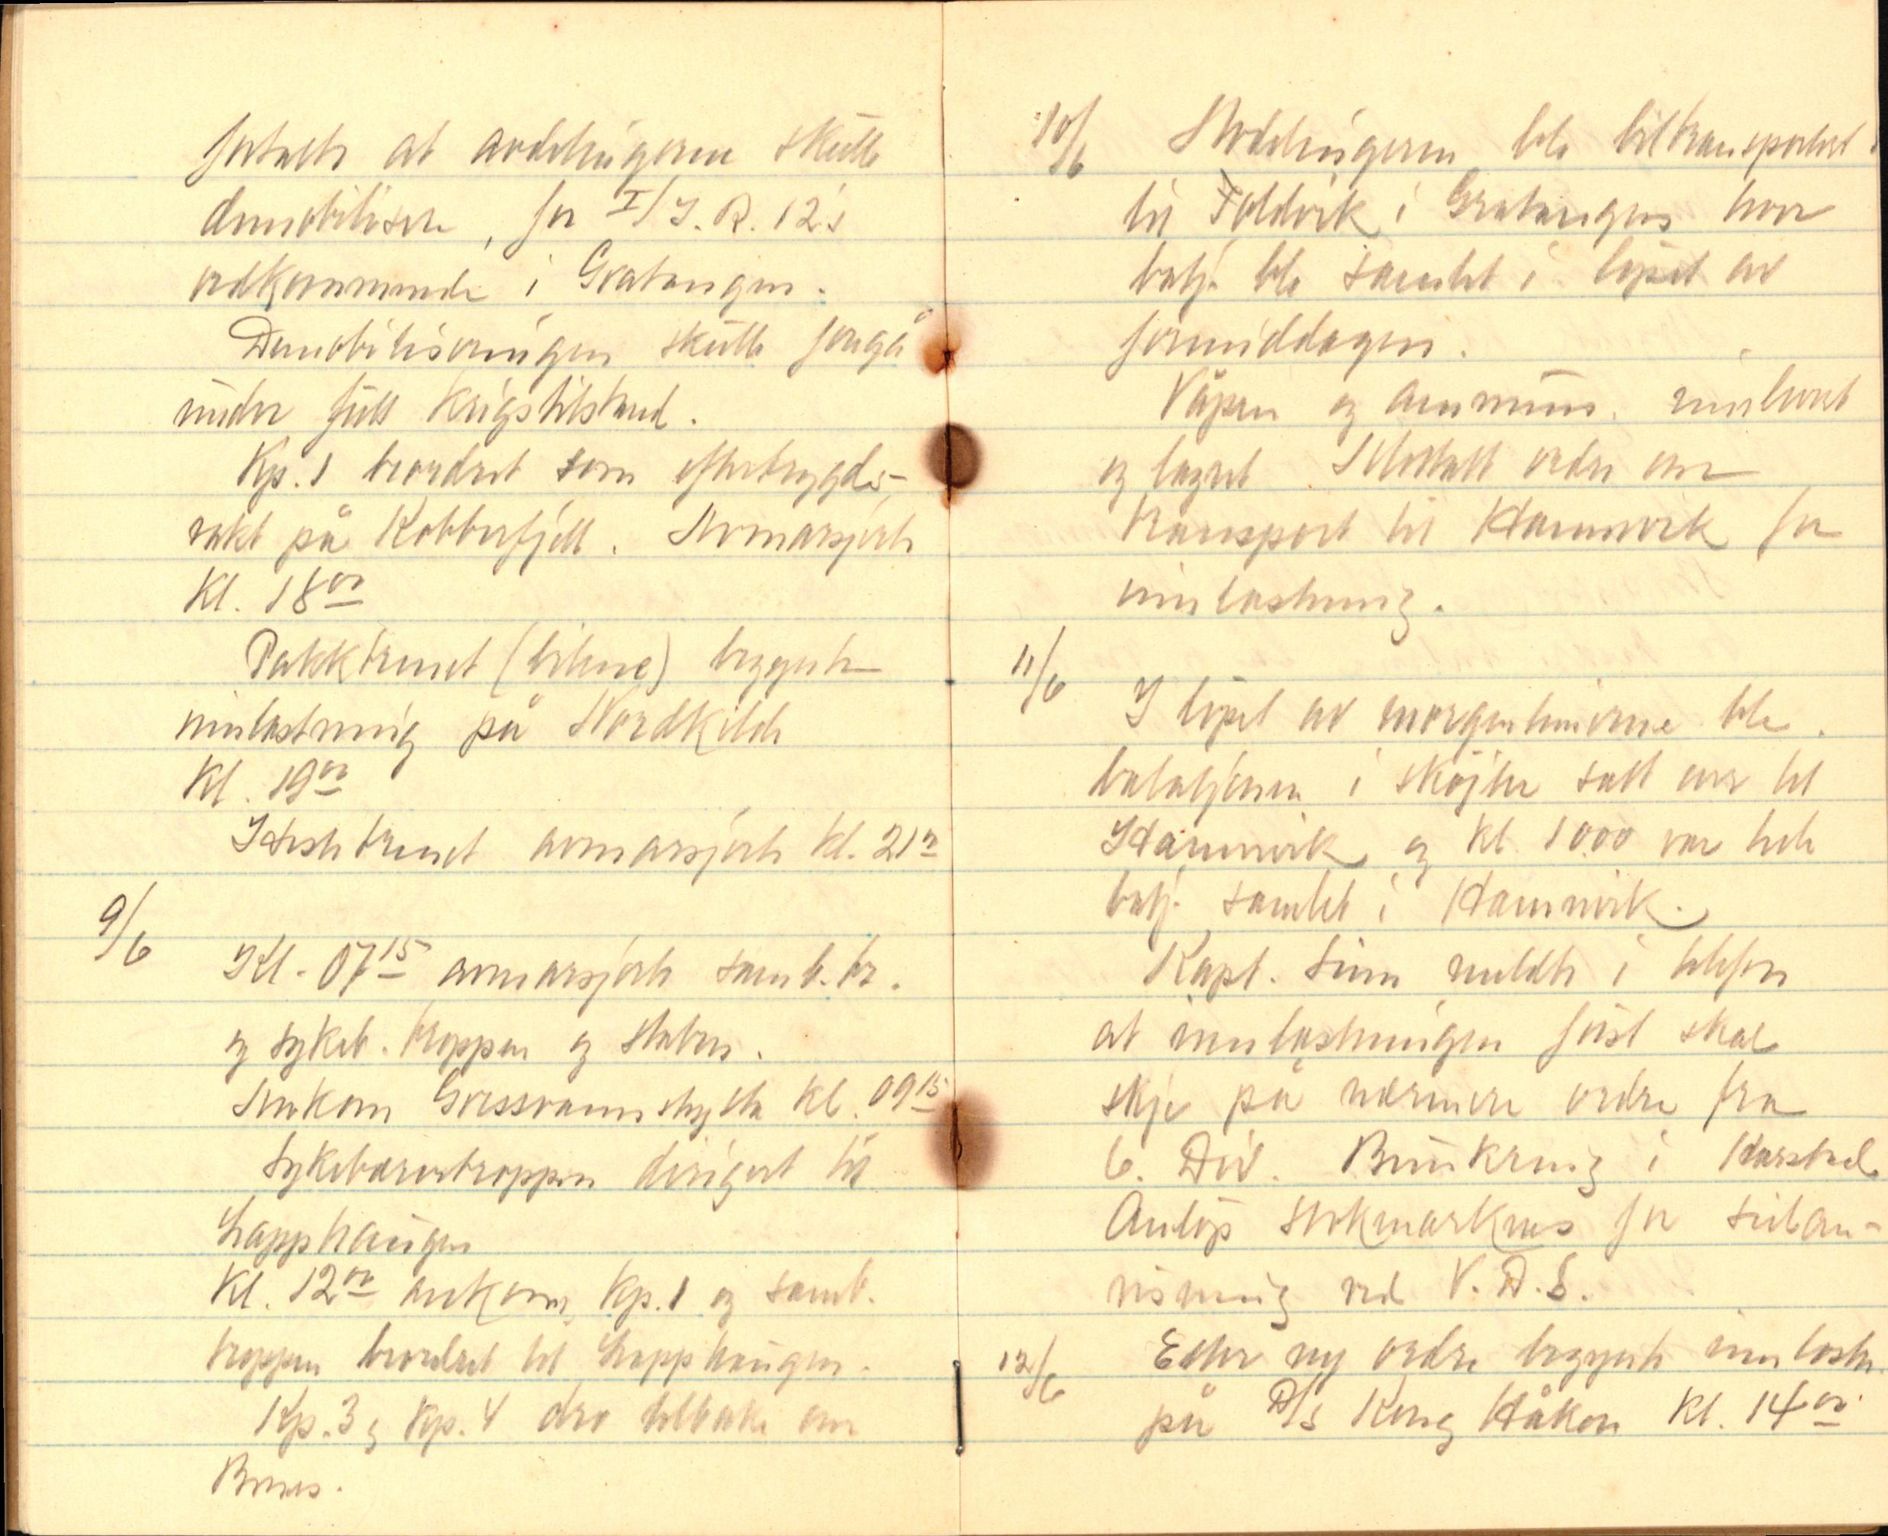 fortalte at avdelingene skulle
demobilisere, for I/I.R. 12's
vedkommende i Gratangen.
Demobiliseringen skulle foregå
under full krigstilstand.
Kp. 1 beordret som eftertrygds-
vakt på Kobberfjell. Avmarsjerte
Kl. 18⁰⁰
Pakktrenet (bilene) begynte
innlastning på Nordkilde
Kl. 19⁰⁰
Hestetrenet avmarsjerte kl. 21⁰⁰
9/6
Kl. 07¹⁵ avmarsjerte samb. tr.
og sykeb. troppen og staben.
Ankom Gressvannshytta kl. 09¹⁵
Sykebærertroppen dirigert til
Lapphaugen
Kl. 12⁰⁰ ankom Kp. 1 og samb.
troppen beordret til Lapphaugen.
Kp. 3 og Kp. 4 dro tilbake om
10/6 Avdelingene ble biltransportert
til Foldvik i Gratangen hvor
batj. ble samlet i løpet av
formiddagen.
Våpen og ammun. innlevert
og lagret. Mottatt ordre om
transport til Hamnvik for
innlastning.
11/6
I løpet av morgentimene ble
bataljonen i skøjter satt over til
Hamnvik og kl 1000 var hele
batj. samlet i Hamnvik.
Kapt. Sinn meldte i telefon
at innlastningen først skal
skje på nærmere ordre fra
6. Div. Bunkring i Harstad
Anløp Stokmarknes for seilan-
visning ved V.D.S.
12/6 Etter ny ordre begynte innlastn.
på D/S Kong Håkon kl. 14⁰⁰